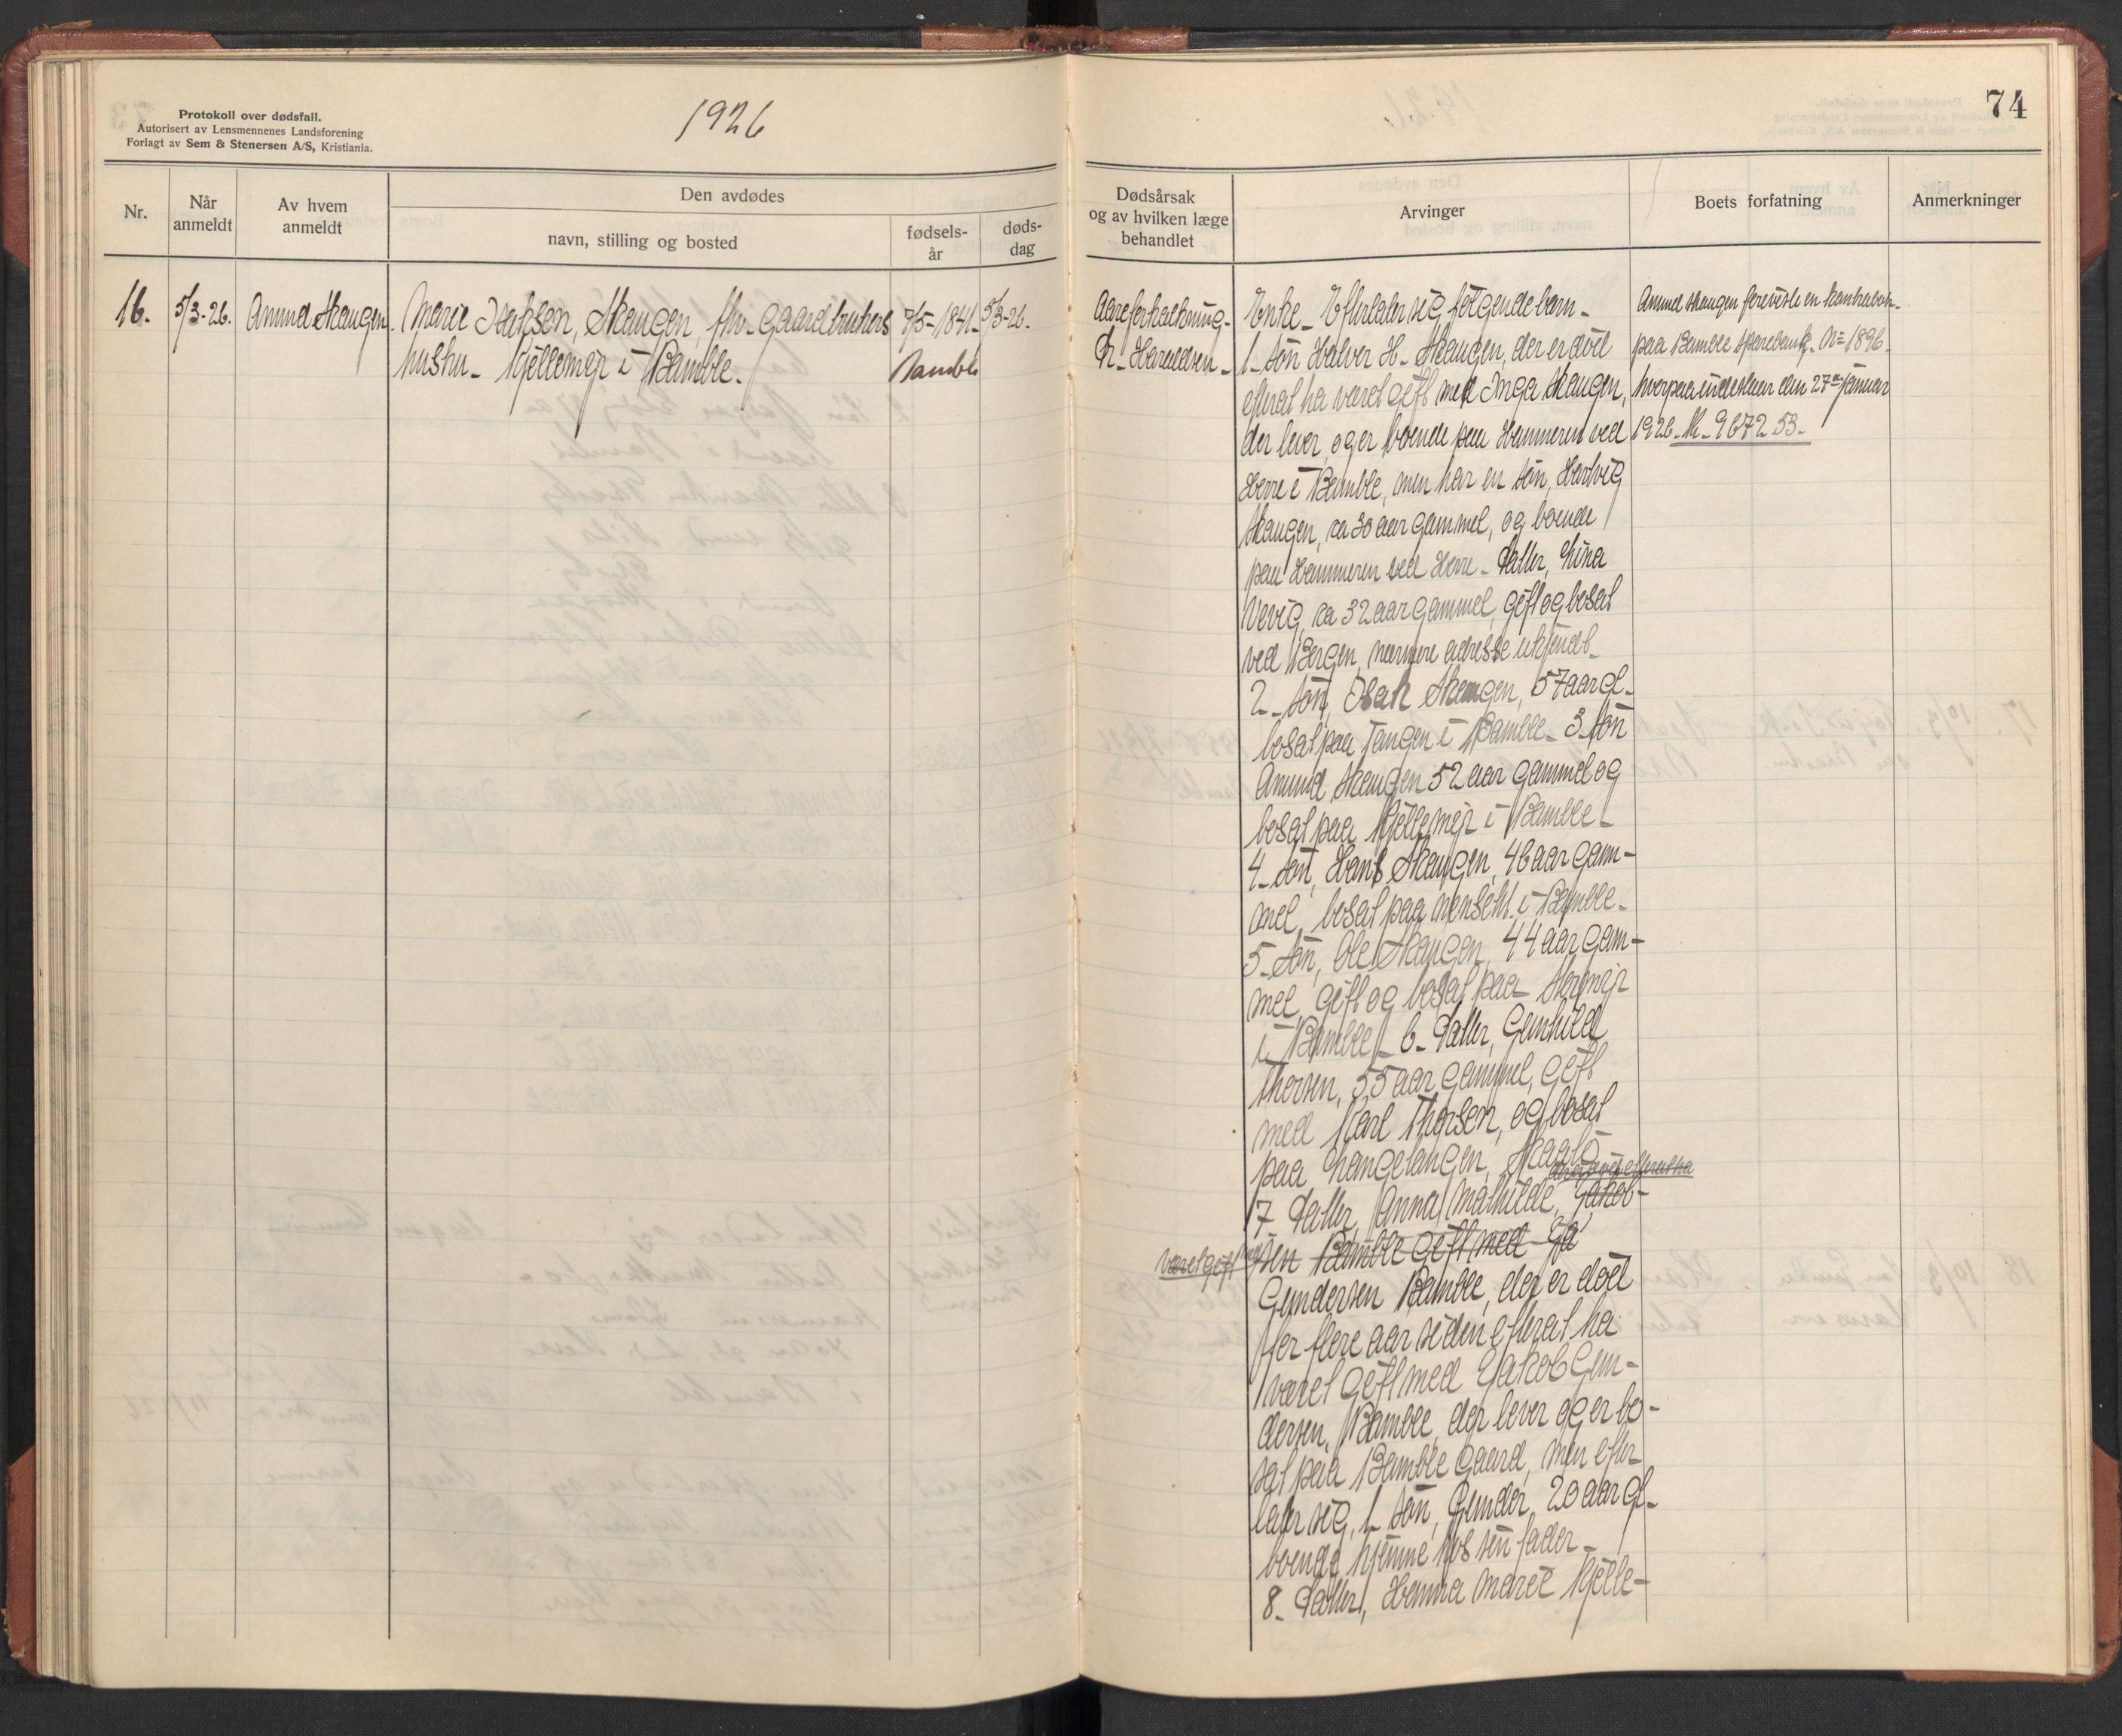 Protokoll over dødsfall.
Autorisert av Lensmennenes Landsforening
Forlagt av Sem & Stenersen A/S, Kristiania.
1926
Nr.
Når anmeldt
Av hvem anmeldt
Den avdødes
navn, stilling og bosted
fødsels-år
døds-dag
16.
5/3-26.
Amund Skaugen.
Marie Isaksen, Skaugen, fhv. Gaardbrukers
hustru - Kjellemyr i Bamble.
7/5-1841.
Bamble
5/3-26.
74
Dødsårsak
og av hvilken læge
behandlet
Arvinger
Boets forfatning
Anmerkninger
Aareforkalkning.
Dr. Haraldsen -
Enke - Efterlater sig følgende barn -
1. Søn Halvor H. Skaugen, der er død
efterat ha været gift med Inga Skaugen,
der lever, og er boende paa Hammeren ved
Herre i Bamble, men har en søn, Hartvig
Skaugen, ca 30 aar gammel, og boende
paa Hammeren ved Herre - Datter, Lina
Vevig, ca 32 aar gammel, gift og bosat
ved Bergen, nærmere adresse ukjendt -
2. Søn, Isak Skaugen, 57 aar gl.
bosat paa Tangen i Bamble - 3. Søn
Amund Skaugen 52 aar gammel og
bosat paa Kjellemyr i Bamble -
4. Søn, Hans Skaugen, 46 aar gam-
mel, bosat paa i Bamble -
5. Søn, Ole Skaugen, 44 aar gam-
mel, gift og bosat paa
i Bamble - 6. Datter, Gunhild
Thorsen, 55 aar gammel, gift
med Karl Thorsen, og bosat
paa Langetangen, Skaatö -
der er død efterat ha
7 Datter, Anna Mathilde, Jakob-
været gift med
sen Bamble gift med Ja
Gundersen Bamble, der er død
for flere aar siden efterat ha
været gift med Jakob Gun-
dersen, Bamble, der lever og er bo-
sat paa Bamble Gaard, men efter-
later sig, 1 søn, Gunder, 20 aar gl.
boende hjemme hos sin fader -
8. Datter, Hanna Marie Kjelle-
Amund Skaugen foreviste en kontrabok
paa Bamble Sparebank, No 1896.
hvorpaa indestaar den 27de Januar
1926. Kr. 9672 53.